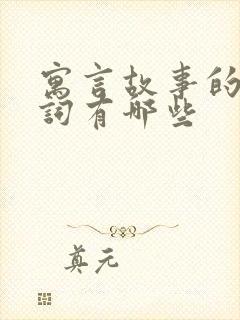 寓言故事的
詞有哪些
真元